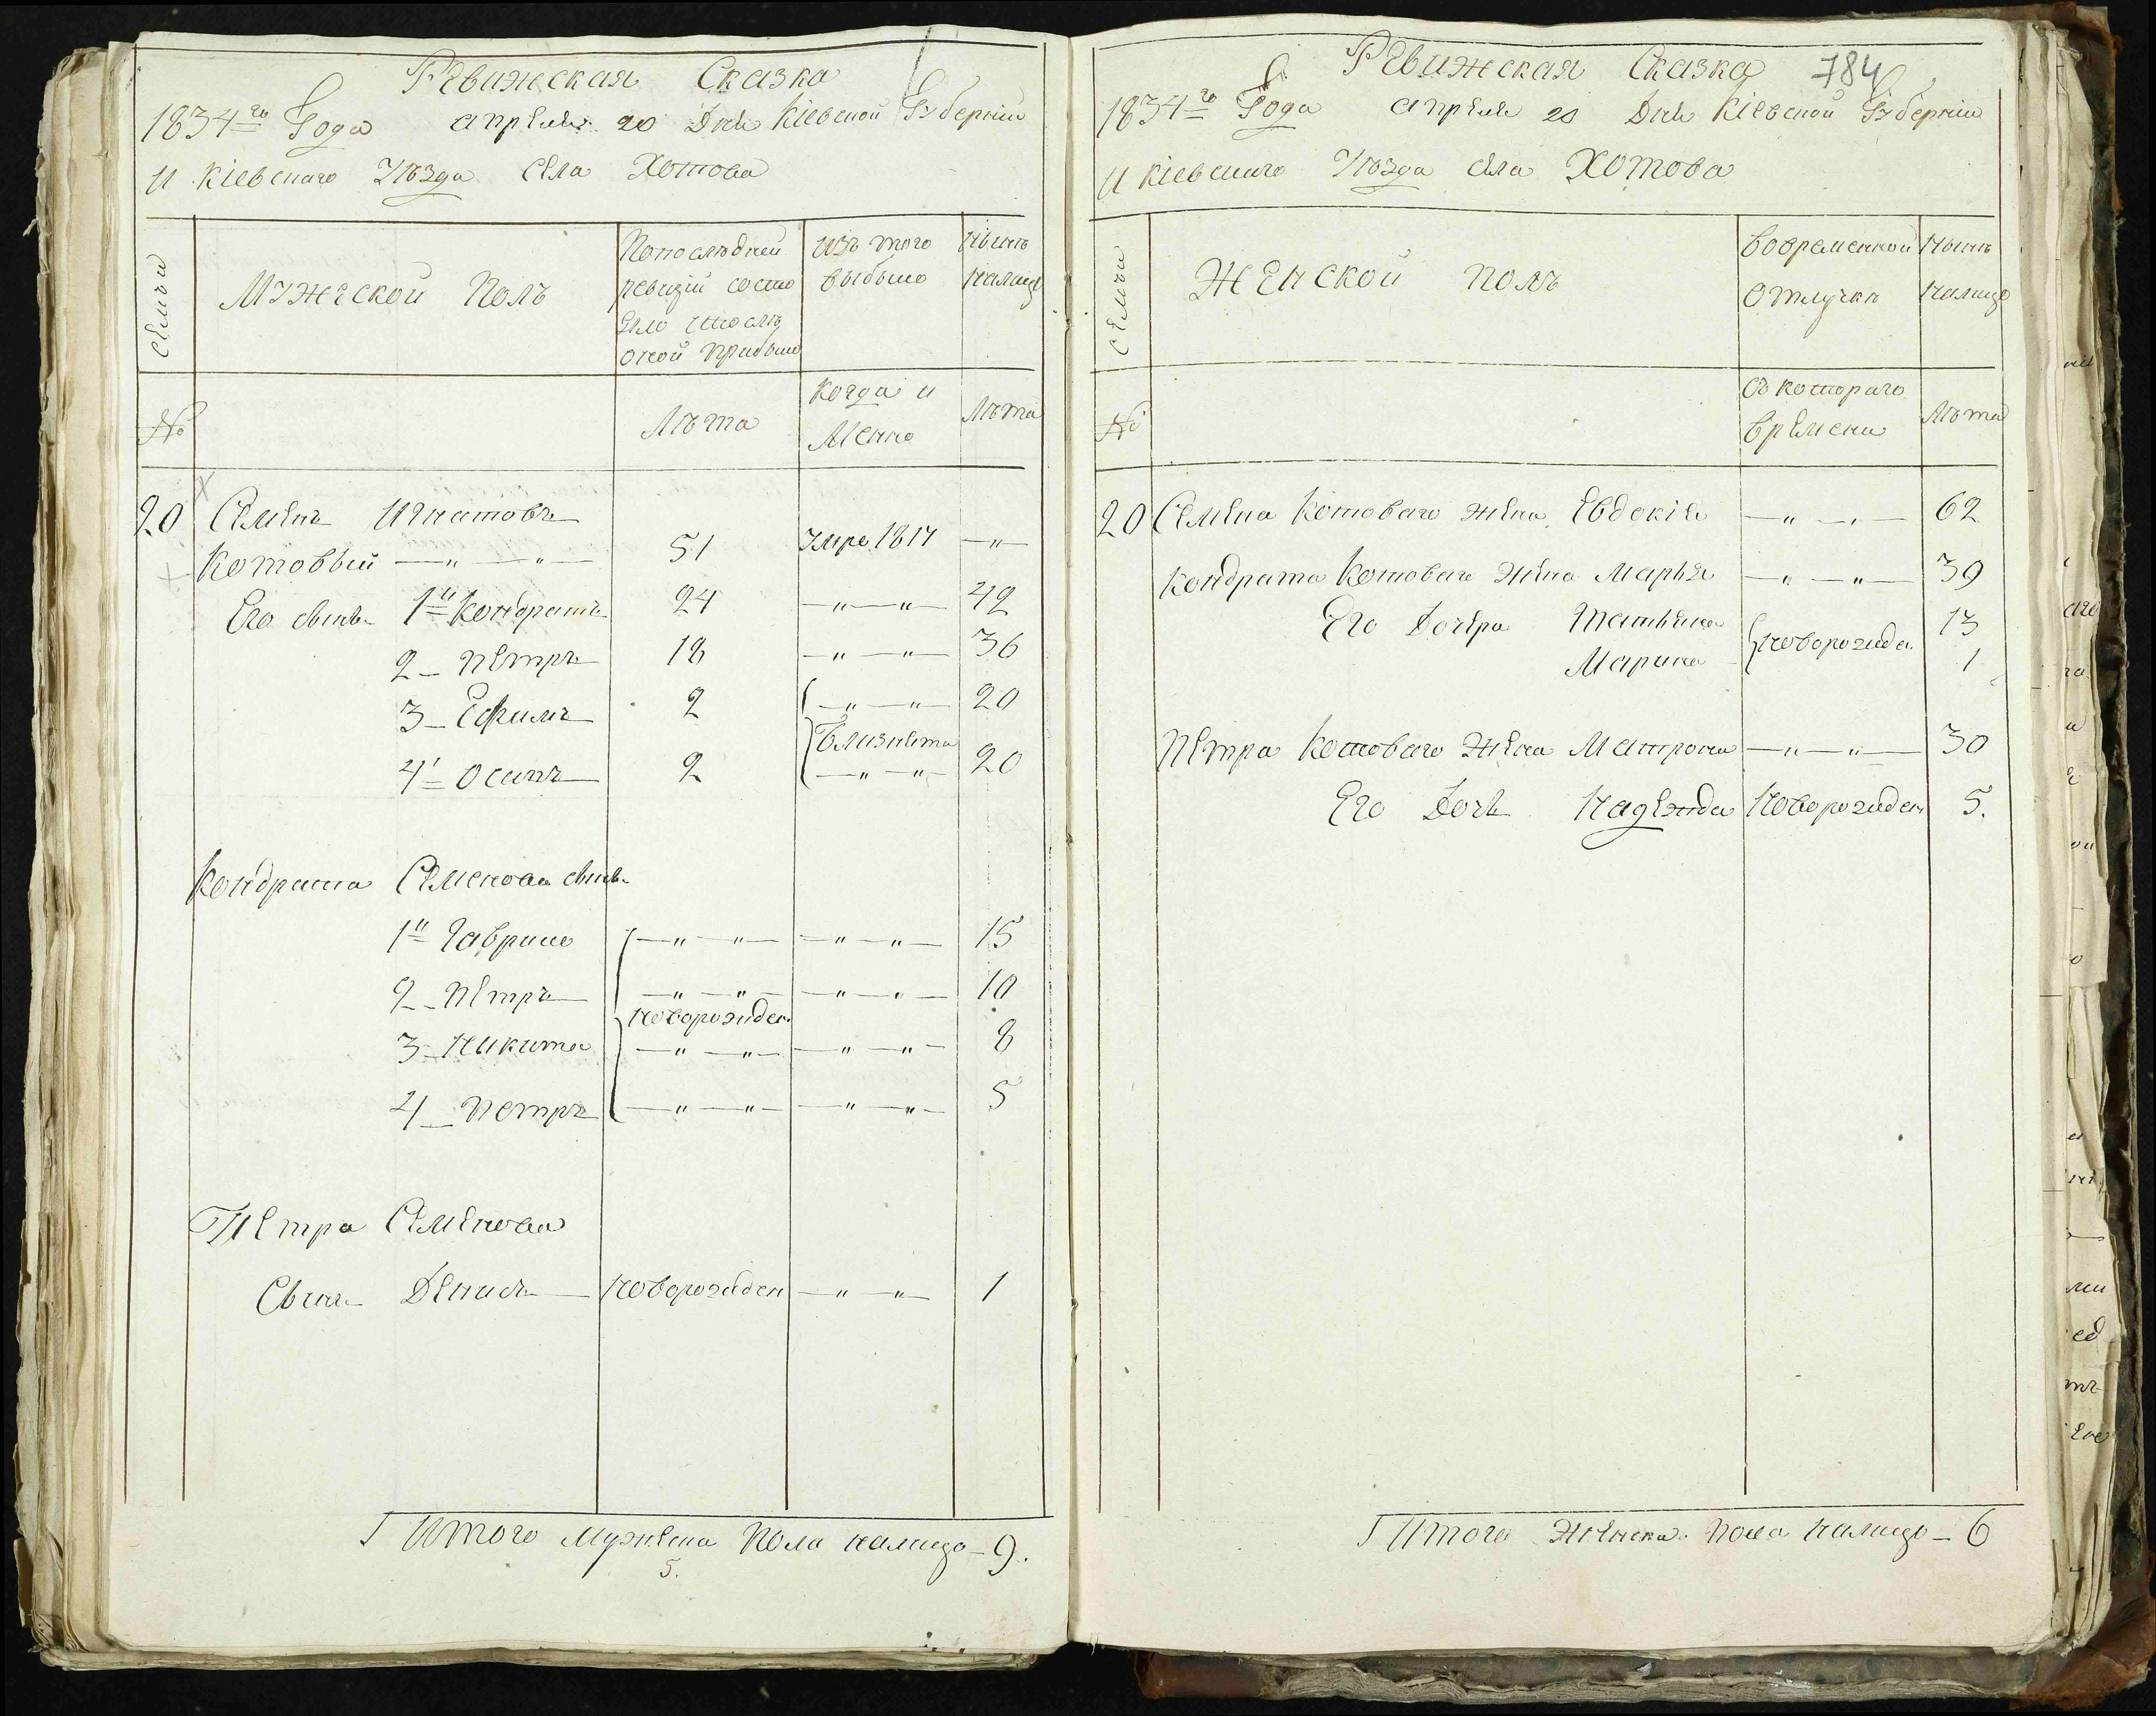 Ревижская Сказка
1834го Года апреля 20 Дня Кіевской Губерніи
и Кіевскаго Уѣзда Села Хотова
Семьи
Мужеской Полъ
Попослѣдней
ревизіи состо
яло ипослѣ
оной прибыло
изъ того
выбыло
Нынѣ
налицо
№
Лѣта
Когда и
Менно
Лѣта
20 Семенъ Игнатовъ
Котовый — " — " — 51 Умре 1817 — " —
Его сынъ 1й Кондратъ 24 — " — " — 42
2 — Петръ 18 — " — " — 36
3 — Ефимъ 2 — " — " — 20
Близнята
4 — Осипъ 2 — " — " — 20
Кондрата Семенова сынъ
1й Гаврило — " — " — — " — " — 15
2 — Петръ — " — " — — " — " — 10
Новорожден.
3 — Никита — " — " — — " — " — 8
4 — Петръ — " — " — — " — " — 5
Петра Семенова
Сынъ Денисъ — Новорожден — " — " — 1
Итого Мужеска Пола налицо — 9.
5.
784
Ревижская Сказка
1834го Года апреля 20 Дня Кіевской Губерніи
и Кіевскаго Уѣзда Села Хотова
Семьи
Женской полъ
Вовременной
отлучкѣ
Нынѣ
налицо
№
Съ котораго
времени
Лѣта
20 Семена Котоваго жена Евдокія — " — " — 62
Кондрата Котоваго жена Марья — " — " — 39
Его Дочера Татьяна 13
Новорожден.
Марина 1
Петра Котоваго жена Матрона — " — " — 30
Его Дочь Надежда Новорожден 5.
Итого Женска Пола налицо — 6